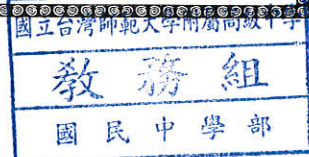 國立台灣師範大學附屬高級中學
教務組
國民中學部